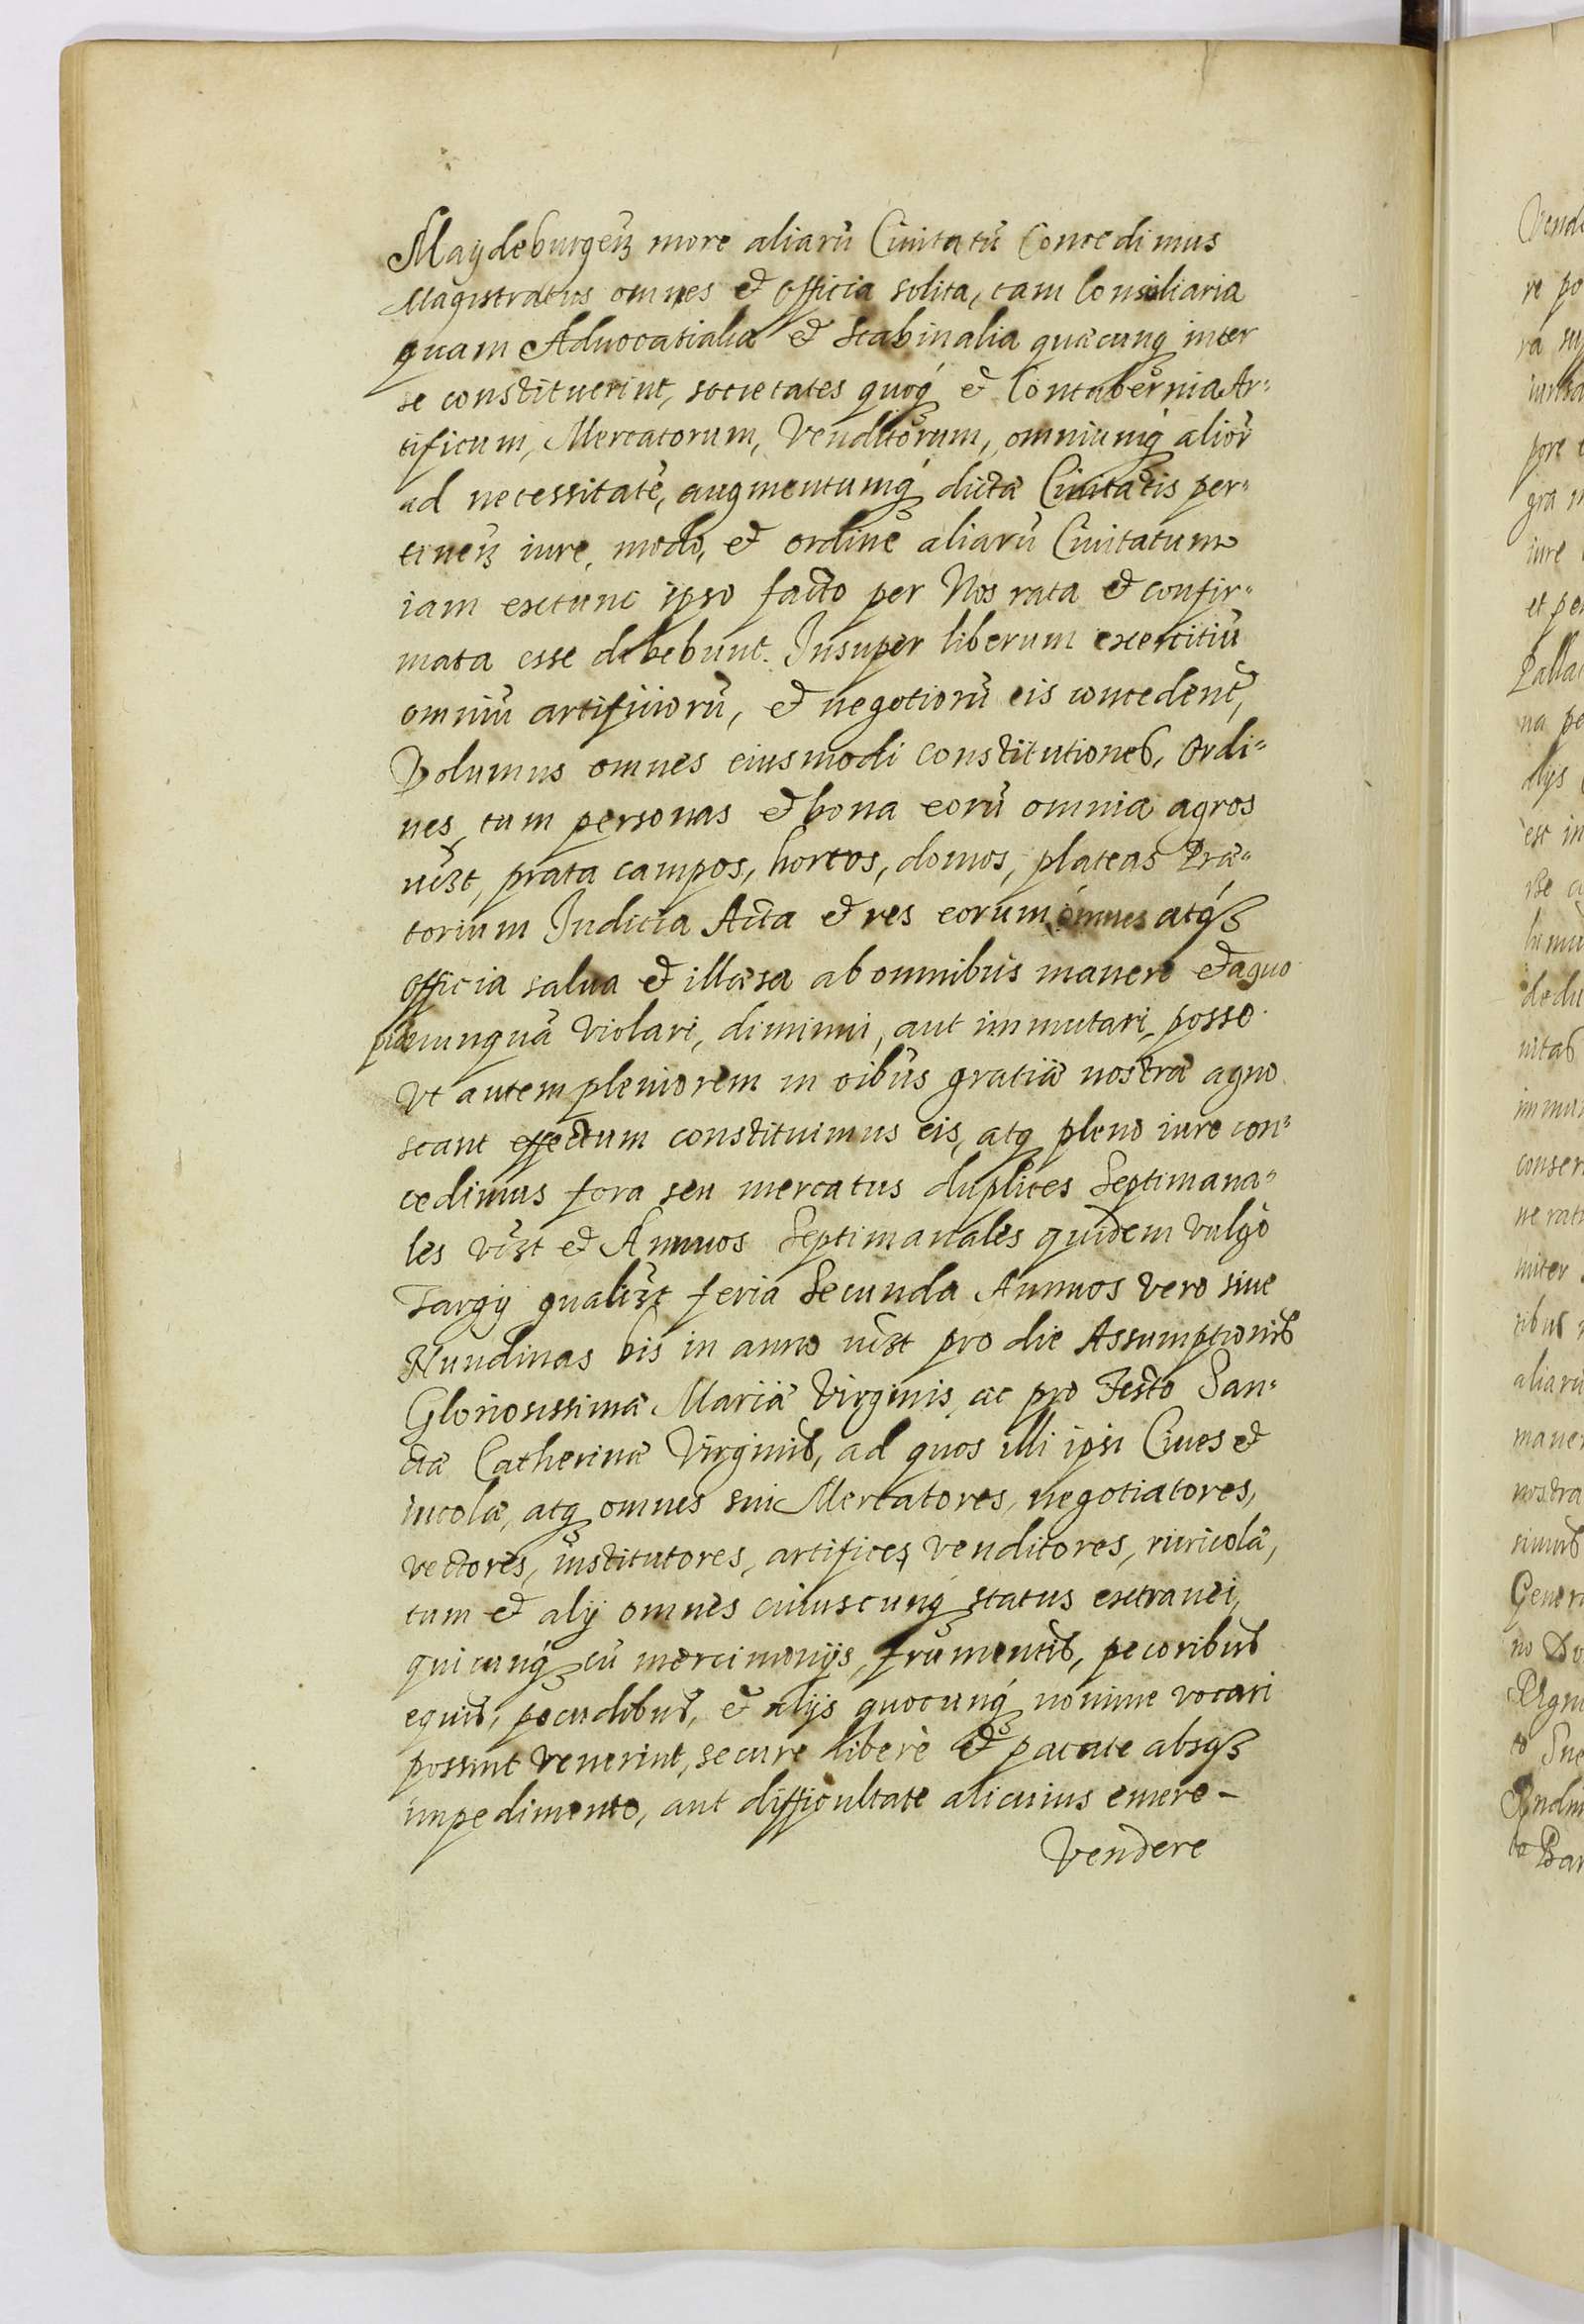 Magdeburgeñ more aliarũ Ciuitatũ Concedimus
Magistratus omnes et officia solita, tam Consiliaria
quam Aduocatialia et Scabinalia quæcunq̃ inter
se constituerint, societates quoq́ et Contubernia Ar=
tificum, Mercatorum, Venditorum, omniumq́ alior̃
ad necessitatẽ, augmentumq́ dictæ Ciuitatis per=
tineñ iure, modo, et ordine aliarũ Ciuitatum
iam extunc ipso facto per Nos rata et confir=
mata esse debebunt. Insuper liberum exercitiũ
omniũ artificiorũ, et negotiorũ eis concedent̃,
Volumus omnes eiusmodi constitutiones, Ordi=
nes, tum personas et bona eorũ omnia agros
vizt, prata campos, hortos, domos, plateas Præ=
torium Iudicia Acta et res eorum omnes atq́
officia salua et illæsa ab omnibus manere et a quo
piã nunquã violari, diminui, aut immutari posse.
Vt autem pleniorem in oĩbus gratiæ nostræ agno
scant effectum constituimus eis, atq̃ pleno iure con=
cedimus fora seu mercatus duplices Septimana=
les vizt et Annuos Septimanales quidem vulgo
Targÿ qualizt feria Secunda Annuos vero siue
Nundinas bis in anno vizt pro die Assumptionis
Gloriosissimæ Mariæ Virginis, ac pro Festo San=
ctæ Catherinæ Virginis, ad quos illi ipsi Ciues et
incolæ, atq̃ omnes sui Mercatores, negotiatores,
vectores, institutores, artifices, venditores, ruricolæ,
tum et alÿ omnes cuiuscunq̃ status extranei,
quicunq́ cũ mercimonÿs, frumentis, pecoribus
equis, pecudibus, et alÿs quocunq́ nomine vocari
possint venerint, secure liberè et pacate absq̃
impedimento, aut difficultate alicuius emere –
Vendere